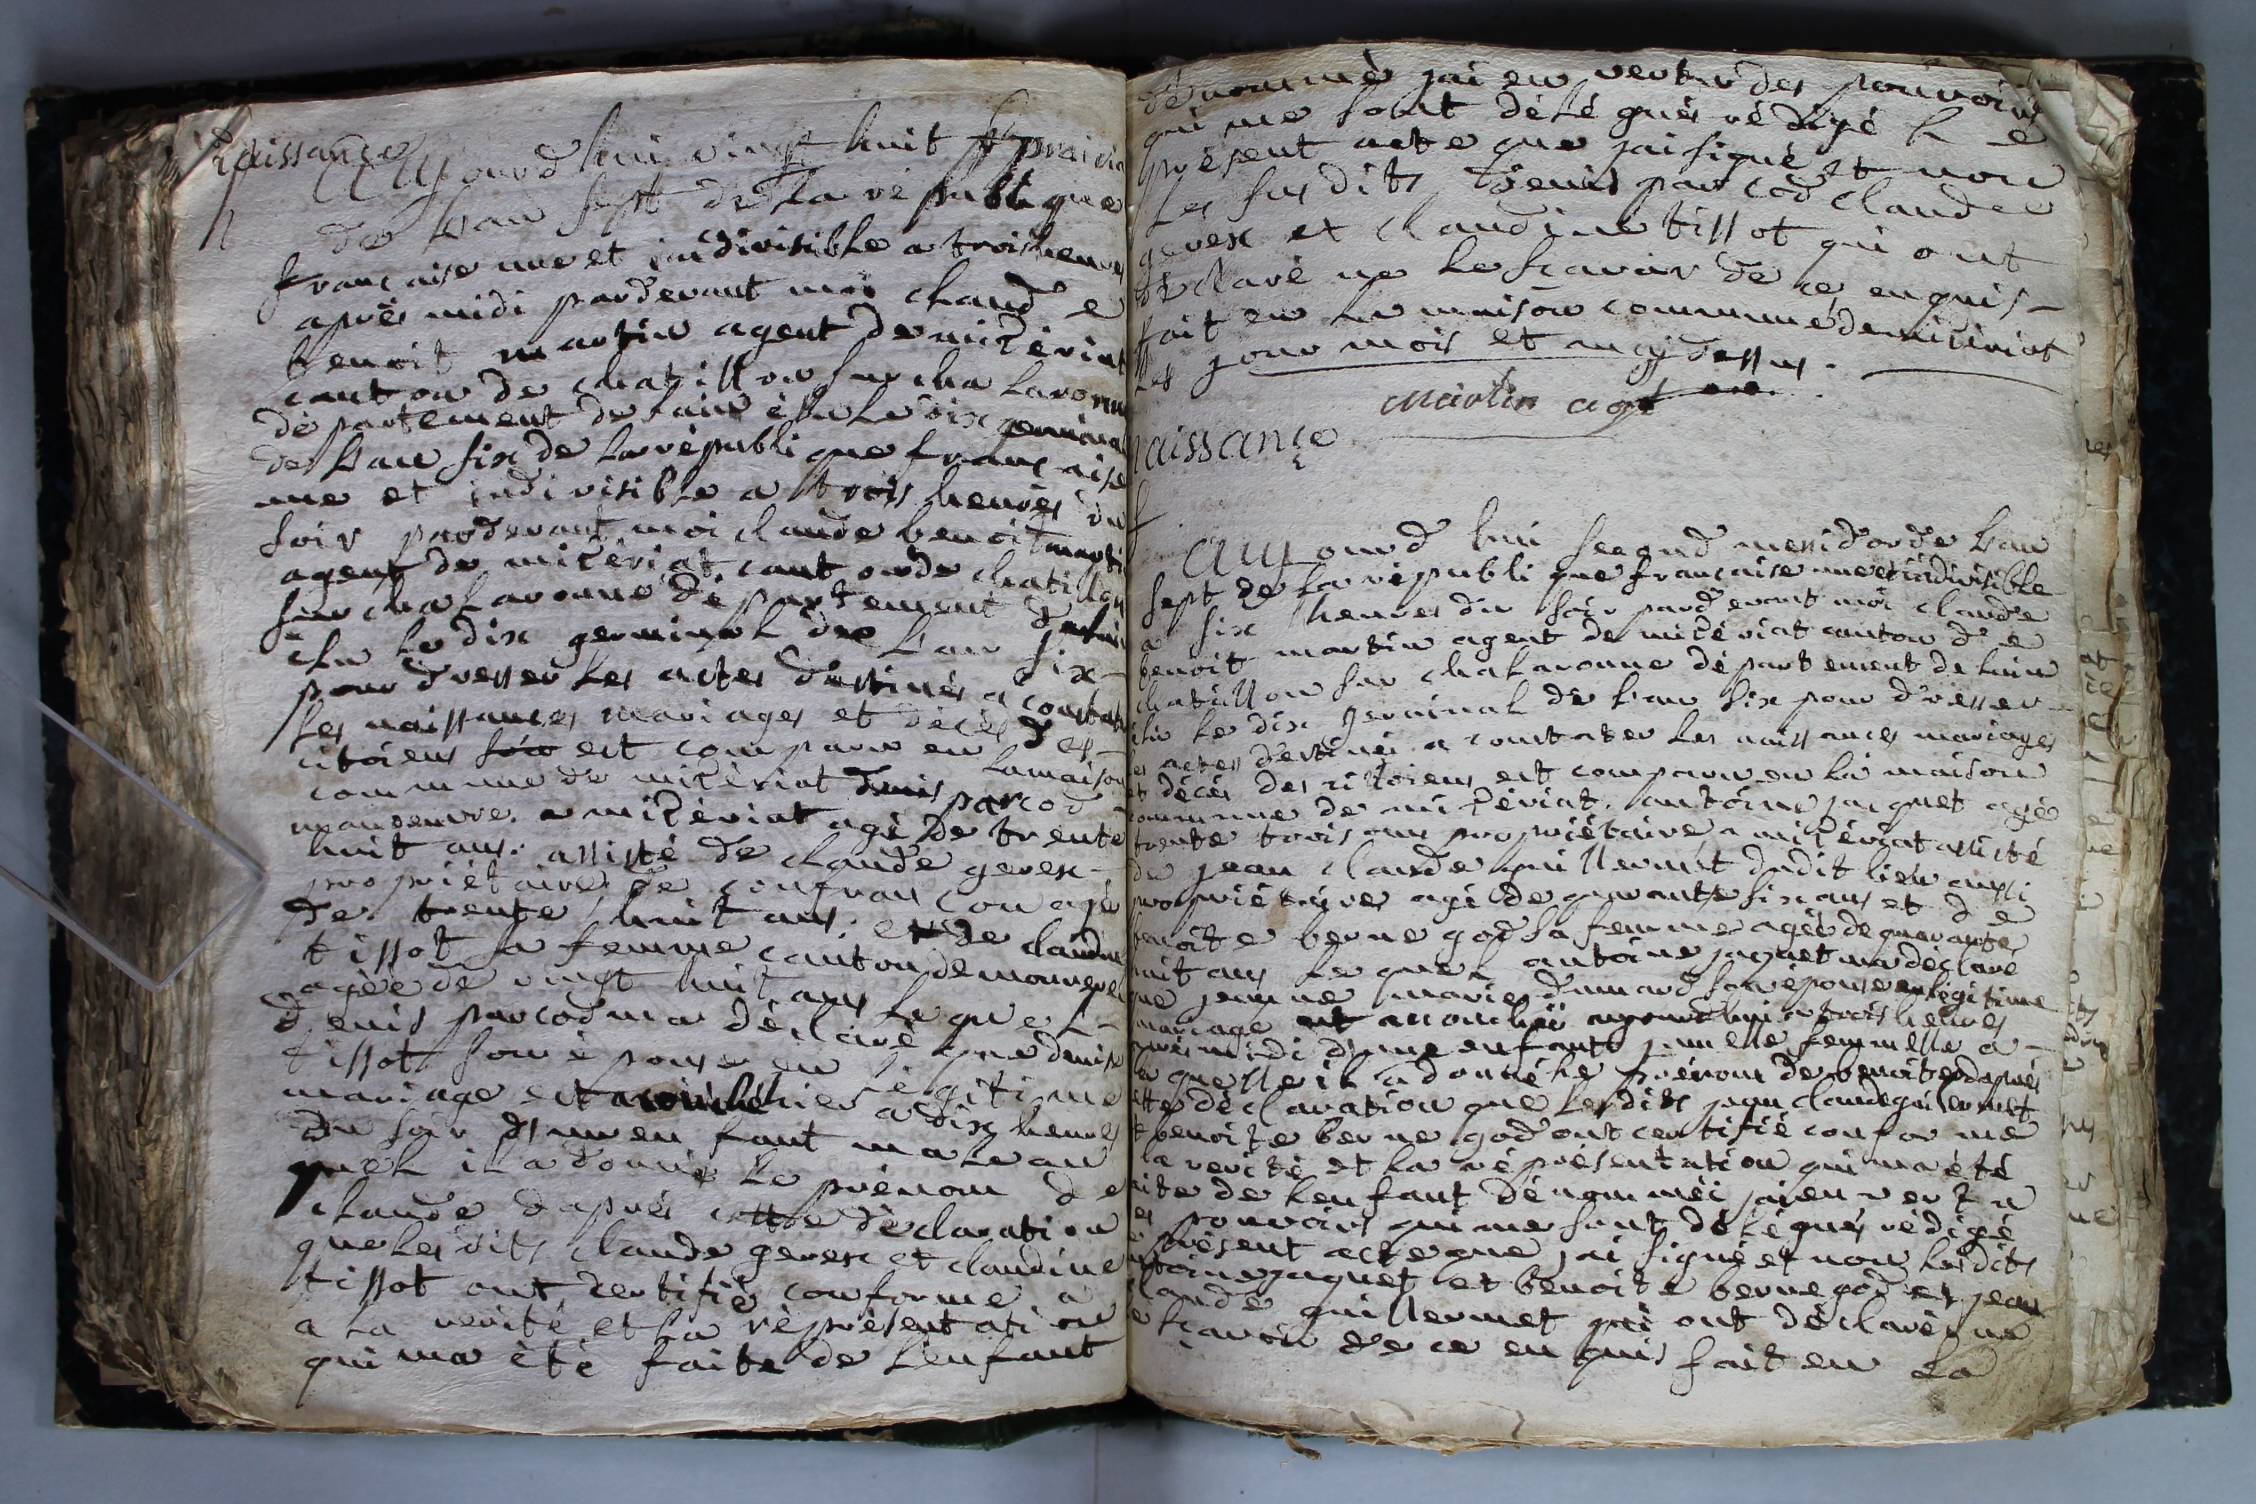 naissance
h
Aujourd hui vingt huit prairia
de Lan sept de La republique
française une et indivisible a trois heures
après midi pardevant moi claude
benoit martin agent de mizériat
canton de chatillon sur chalaronne
département de Lain élu Le dix germinal
de Lan six de La république française
une et indivisible a trois heures du
soir pardevant moi claude benoit marti
agent de mizériat cant onde chatillon
sur chalaronne département de Lain
élu Le dix germinal de Lan six
pour dresser Les actes destinés a constat
Les naissances mariages et décès des
citoiens est comparu en Lamaison
commune de mizériat denis parcod
manoeuvre a mizériat agé de trente
huit ans. assisté de claude gerex
propriétaire de confrançon agé
de trente huit ans. et de claudine
tissot sa femme canton de monrevel
agée de vingt huit ans Lequel
denis parcod ma déclaré que denise
tissot son épouse en Légitime
mariage est hier a dix heures
du soir dun en fant male au
quel il a donné Le prénom de
claude dapres cette déclaration
que Les dits claude gerex et claudine
tissot ont certifié conforme a
a La verité et La représentation
qui ma été faite de Lenfant
dénommé jai en vertu des pouvoirs
qui me sont délégués rédigé Le
présent acte que jai signé et non
Les sus dits denis parcod claude
gerex et claudine tissot qui ont
déclaré ne Le sçavoir de ce enquis
fait en La maison commune de miziriat
Les jour mois et an cy dessus.
Martin agt
naissance
f
Aujourd hui second messidor de Lan
sept de La républi que française une et indivisible
a six heures du soir pardevant moi claude
benoit martin agent de mizériat canton de
chatillon sur chalaronne département de Lain
élu Le dix germinal de Lan six pour dresser
es actes destinés a constater Les naissances mariages
et décés des citoiens est comparu en La maison
commune de mizériat. antoine jacquet agé
trente trois ans propriétaire a mizériat assisté
de jean claude guillermet dudit lieu aussi
propriétaire agé de quarante six ans et de
benoite berne god sa femme agée de quarante
huit ans Lequel antoine jaquet ma déclaré
que jeanne marie dumard son épouse en légitime
mariage est accouchée aujourdhui a trois heures
après midi dune enfante jumelle femmelle a
la quelle il a donné Le prénom de benoite dapres
cette déclaration que Lesdits jean claude guillermet
et benoite berne god ont certifié conforme
La verité et La représentation qui ma été
aite de Lenfant dénommé jai en vertu
es pouvoirs qui me sont délégués rédigé
Le présent acte que jai signé et non Lesdits
antoine jaquet et benoite berne god et jean
claude guillermet qui ont déclaré ne
Le sçavoir de ce en quis fait en La